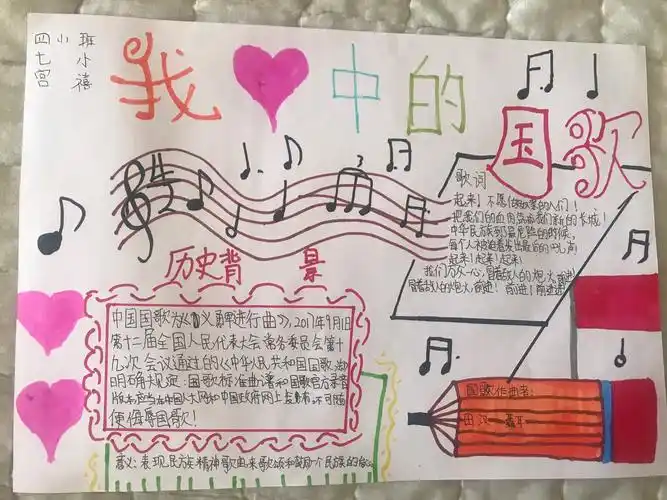 四 小 班
七 小
宫 禧
我 中的
国歌
歌词
起来！不愿做奴隶的人们！
把我们的血肉筑成我们新的长城！
中华民族到了最危险的时候，
每个人被迫着发出最后的吼声
起来！起来！起来！
我们万众一心，冒着敌人的炮火前进
冒着敌人的炮火，前进！前进！前进进
历史背 景
中国国歌为《义勇军进行曲》，2017年9月1日
第十二届全国人民代表大会常务委员会第十
九次会议通过的《中华人民共和国国歌法》
明确规定：国歌标准曲谱和国歌官方录音
版本应当在中国人大网和中国政府网上发布，不可随
便侮辱国歌！
意义：表现民族精神歌曲，来歌颂和鼓励一个民族的
国歌作曲者：
田汉——聂耳